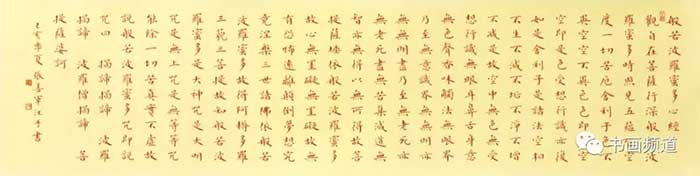 般若波羅蜜多心經
觀自在菩薩行深般若波
羅蜜多時照見五蘊皆空
度一切苦厄舍利子色不
異空空不異色色即是空
空即是色受想行識亦復
如是舍利子是諸法空相
不生不滅不垢不淨不增
不減是故空中無色無受
想行識無眼耳鼻舌身意
無色聲香味觸法無眼界
乃至無意識界無無明亦
無無明盡乃至無老死亦
無老死盡無苦集滅道無
智亦無得以無所得故菩
提薩埵依般若波羅蜜多
故心無罣礙無罣礙故無
有恐怖遠離顛倒夢想究
竟涅槃三世諸佛依般若
波羅蜜多故得阿耨多羅
三藐三菩提故知般若波
羅蜜多是大神咒是大明
咒是無上咒是無等等咒
能除一切苦真實不虛故
說般若波羅蜜多咒即說
咒曰 揭諦揭諦 波羅
揭諦 波羅僧揭諦 菩
提薩婆訶
己亥季夏 張善軍 書
书画频道